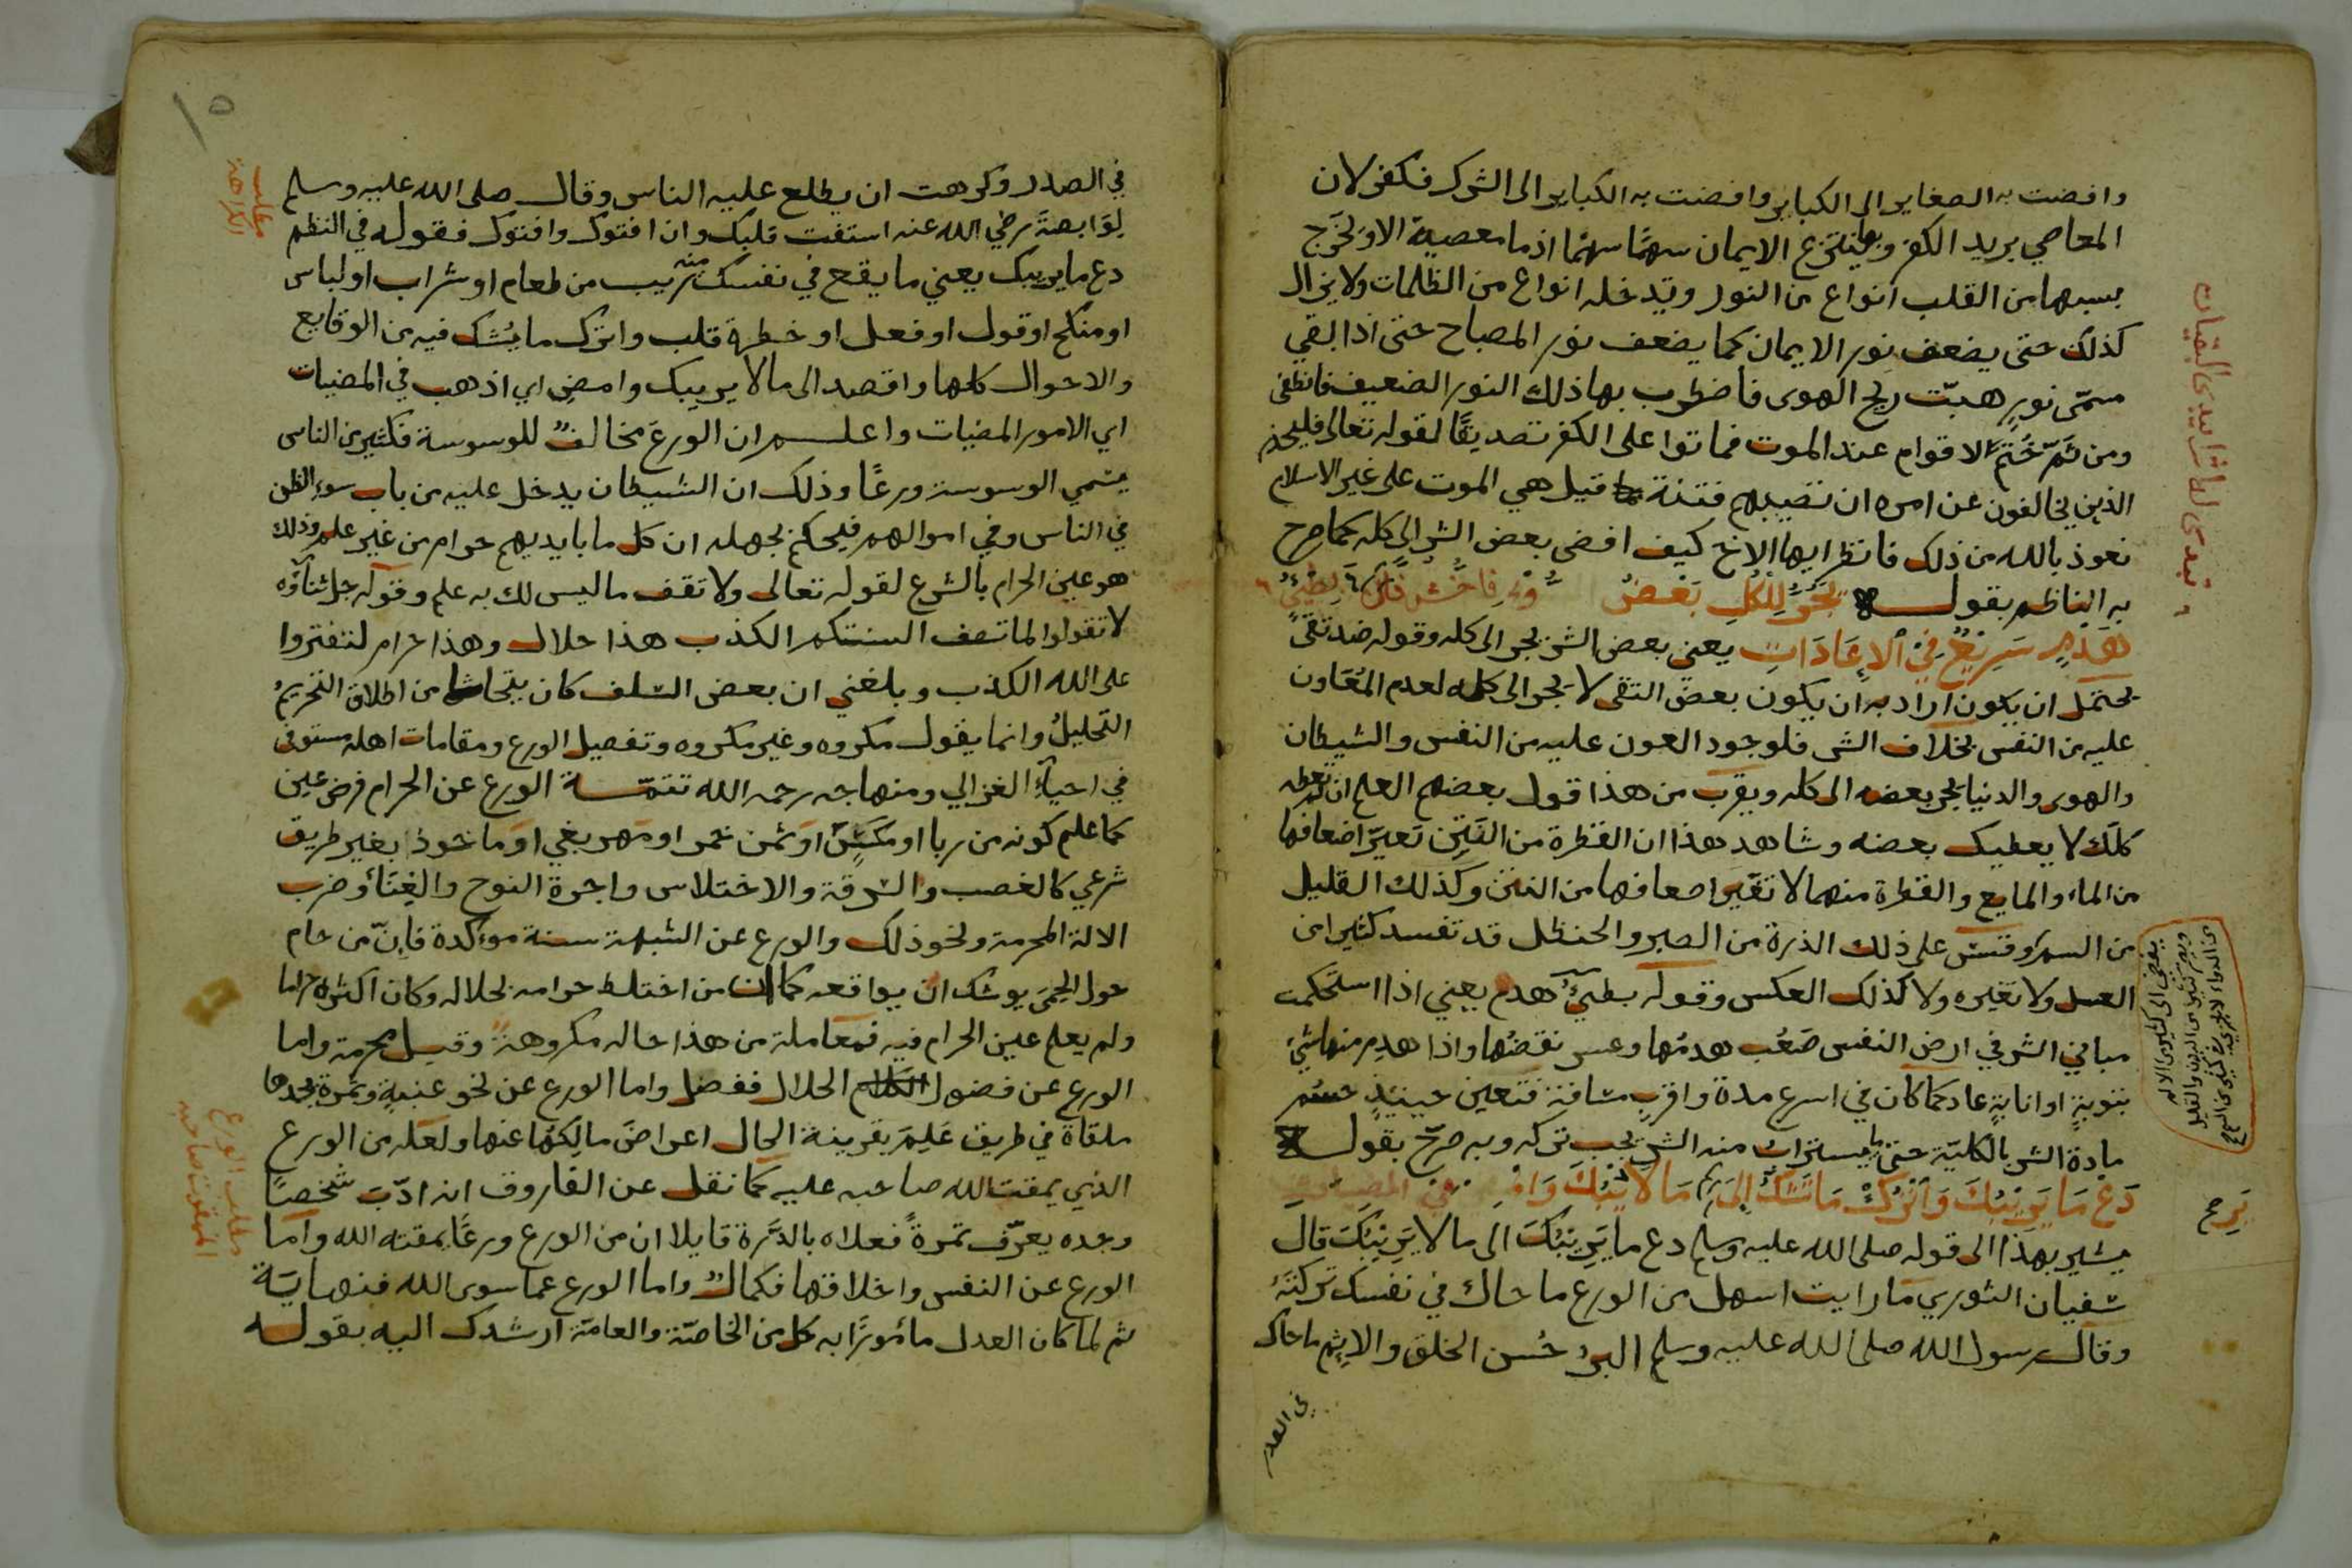 وافضت به الصغاير الى الكباير وافضت به الكباير الى الشرك فكفر لان
المعاصي بريد الكفر وبها ينتزع الايمان سهمًا سهمًا اذ ما معصية الا ويخرج
بسببها من القلب انواع من النور وتدخله انواع من الظلمات ولا يزال
كذلك حتى يضعف نور الايمان كما يضعف نور المصباح حتى اذا بقي
نورٍ هبّت ريح الهوى فاضطرب بها ذلك النور الضعيف فانطفى
ومن ثَمّ خُتِمَ الاقوام عند الموت فماتوا على الكفر تصديقًا لقوله تعالى فليحذر
الذين يخالفون عن امره ان تصيبهم فتنة قيل هي الموت على غير الاسلام
نعوذ بالله من ذلك فانظر ايها الاخ كيف افضى بعض الشر الى كله كما صرح
به الناظم بقوله يَجُرُّ لِلْكُلِ بَعْضُ
هَدْمٍ سَرِيْعٌ فِي الْإِعَادَاتِ يعني بعض الشر يجر الى كله وقوله ضد تقىً
يحتمل ان يكون اراد به ان يكون بعض التقى لا يجر الى كله لعدم المتعاون
عليه من النفس بخلاف الشر فلوجود العون عليه من النفس والشيطان
والهوى والدنيا يجر بعضه الى كله ويقرب من هذا قول بعضهم العلم ان لم تعطه
كلك لا يعطيك بعضه وشاهد هذا ان القطرة من النَتِنِ تغيّر اضعافها
من الماء والمايع والقطرة منهما لا تغيّر اضعافها من النتن وكذلك القليل
من السم وقس على ذلك الذرة من الصبر والحنظل قد تفسد كثيرا من
العسل ولا تغيره ولا كذلك العكس وقوله بطيئُ هدم يعني اذا استحكمت
مباني الشر في ارض النفس صَعُب هدمُها وعسر نقضُها واذا هدِم منها شيئ
بتوبةٍ او انابةٍ عاد كما كان في اسرع مدة واقرب مسافة فتعين حينيذٍ حسْم
مادة الشر بالكليّة حتى ما يستراب منه الشر يجب تركه وبه صرّح بقوله
دَعْ مَا يَرِيْبُكَ وَاتْرُكْ مَا تَشُكُّ
يشير بهذا الى قوله صلى الله عليه وسلم دع ما يَرِيْبُكَ الى ما لا يَرِيْبُكَ قالَ
سفيان الثوري ما رايت اسهل من الورع ما حاك في نفسك تركتَهُ
وقال رسول الله صلى الله عليه وسلم البرُ حُسن الخلق والاِثم ما حاك
في الصدر
١٥
في الصدر وكرهت ان يطلع عليه الناس وقال صلى الله عليه وسلم
لوَابصةَ رضي الله عنه استفت قلبك وان افتوك وافتوك فقوله في النظم
دع ما يريبك يعني ما يقع في نفسك منه ريب من طعام او شراب او لباس
او منكح او قول او فعل او خطرة قلب واترك ما يُشك فيه من الوقايع
والاحوال كلها واقصد الى ما لا يريبك وامضِ اي اذهب في المضيات
اي الامور المضيات واعلم ان الورعَ مخالفٌ للوسوسة فكثير من الناس
يسمي الوسوسة ورعًا وذلك ان الشيطان يدخل عليه من باب سوء الظن
في الناس وفي اموالهم فيحكم بجهله ان كل ما بايديهم حرام من غير علم وذلك
هو عين الحرام بالشرع لقوله تعالى ولا تقف ما ليس لك به علم وقوله جل ثناؤه
لا تقولوا لما تصف السنتكم الكذب هذا حلال وهذا حرام لتفتروا
على الله الكذب وبلغني ان بعض السلف كان يتحاشا من اطلاق التحريمُ
التحليلُ وانما يقول مكروه وغير مكروه وتفصيل الورع ومقامات اهله مستوفى
في احياءِ الغزالي ومنهاجه رحمه الله تتمّة الورع عن الحرام فرض عين
كما علم كونه من ربا او مَكسٍ او ثمن خمر او مهر بغي او ماخوذا بغير طريق
شرعي كالغصب والسرقة والاختلاس واجرة النوح والغِنَاءُ وضرب
الالة المحرمة ونحو ذلك والورع عن الشبهة سنة موءكدة فاِنّ من حام
حول الحِمَى يوشك ان يواقعه كما ان من اختلط حرامه بحلاله وكان اكثره حراما
ولم يعلم عين الحرام فيه فمعاملة من هذا حاله مكروهةٌ وقيل محرمة واما
الورع عن فضول الحلال ففضل واما الورع عن نحو عنبةٍ وتمرة يجدها
ملقاة في طريق عَلِمَ بقرينة الحال اعراضَ مالِكها عنها ولعَله من الورع
الذي يمقت الله صاحبه عليه كما نقل عن الفاروق انه ادّب شخصًا
وجده يعرّف تمرةً فعلاه بالدّرة قايلا ان من الورع ورعًا يمقته الله واما
الورع عن النفس واخلاقها فكمالٌ واما الورع عما سوى الله فنهايَة
ثم لما كان العدل مأمورًا به كل من الخاصّة والعامّة ارشدك اليه بقوله